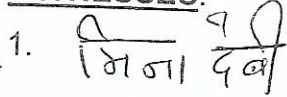 1. मिना देवी